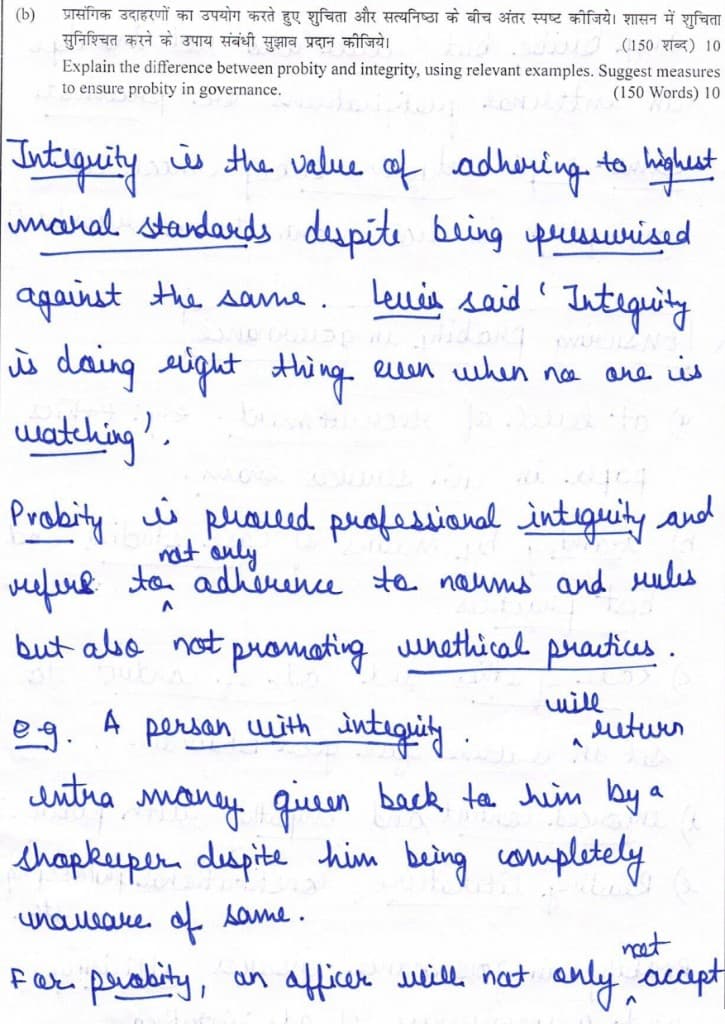 (b) प्रासंगिक उदाहरणों का उपयोग करते हुए शुचिता और सत्यनिष्ठा के बीच अंतर स्पष्ट कीजिये। शासन में शुचिता
सुनिश्चित करने के उपाय संबंधी सुझाव प्रदान कीजिये। (150 शब्द) 10
Explain the difference between probity and integrity, using relevant examples. Suggest measures
to ensure probity in governance. (150 Words) 10
Integrity is the value of adhering to highest
moral standards despite being pressurised
against the same. Lewis said ' Integrity
is doing right thing even when no one is
watching'.
Probity is proved professional integrity and
refers to not only adherence to norms and rules
but also not promoting unethical practices.
e.g. A person with integrity. will return
extra money given back to him by a
shopkeeper despite him being completely
unaware of same.
For probity, an officer will not only not accept